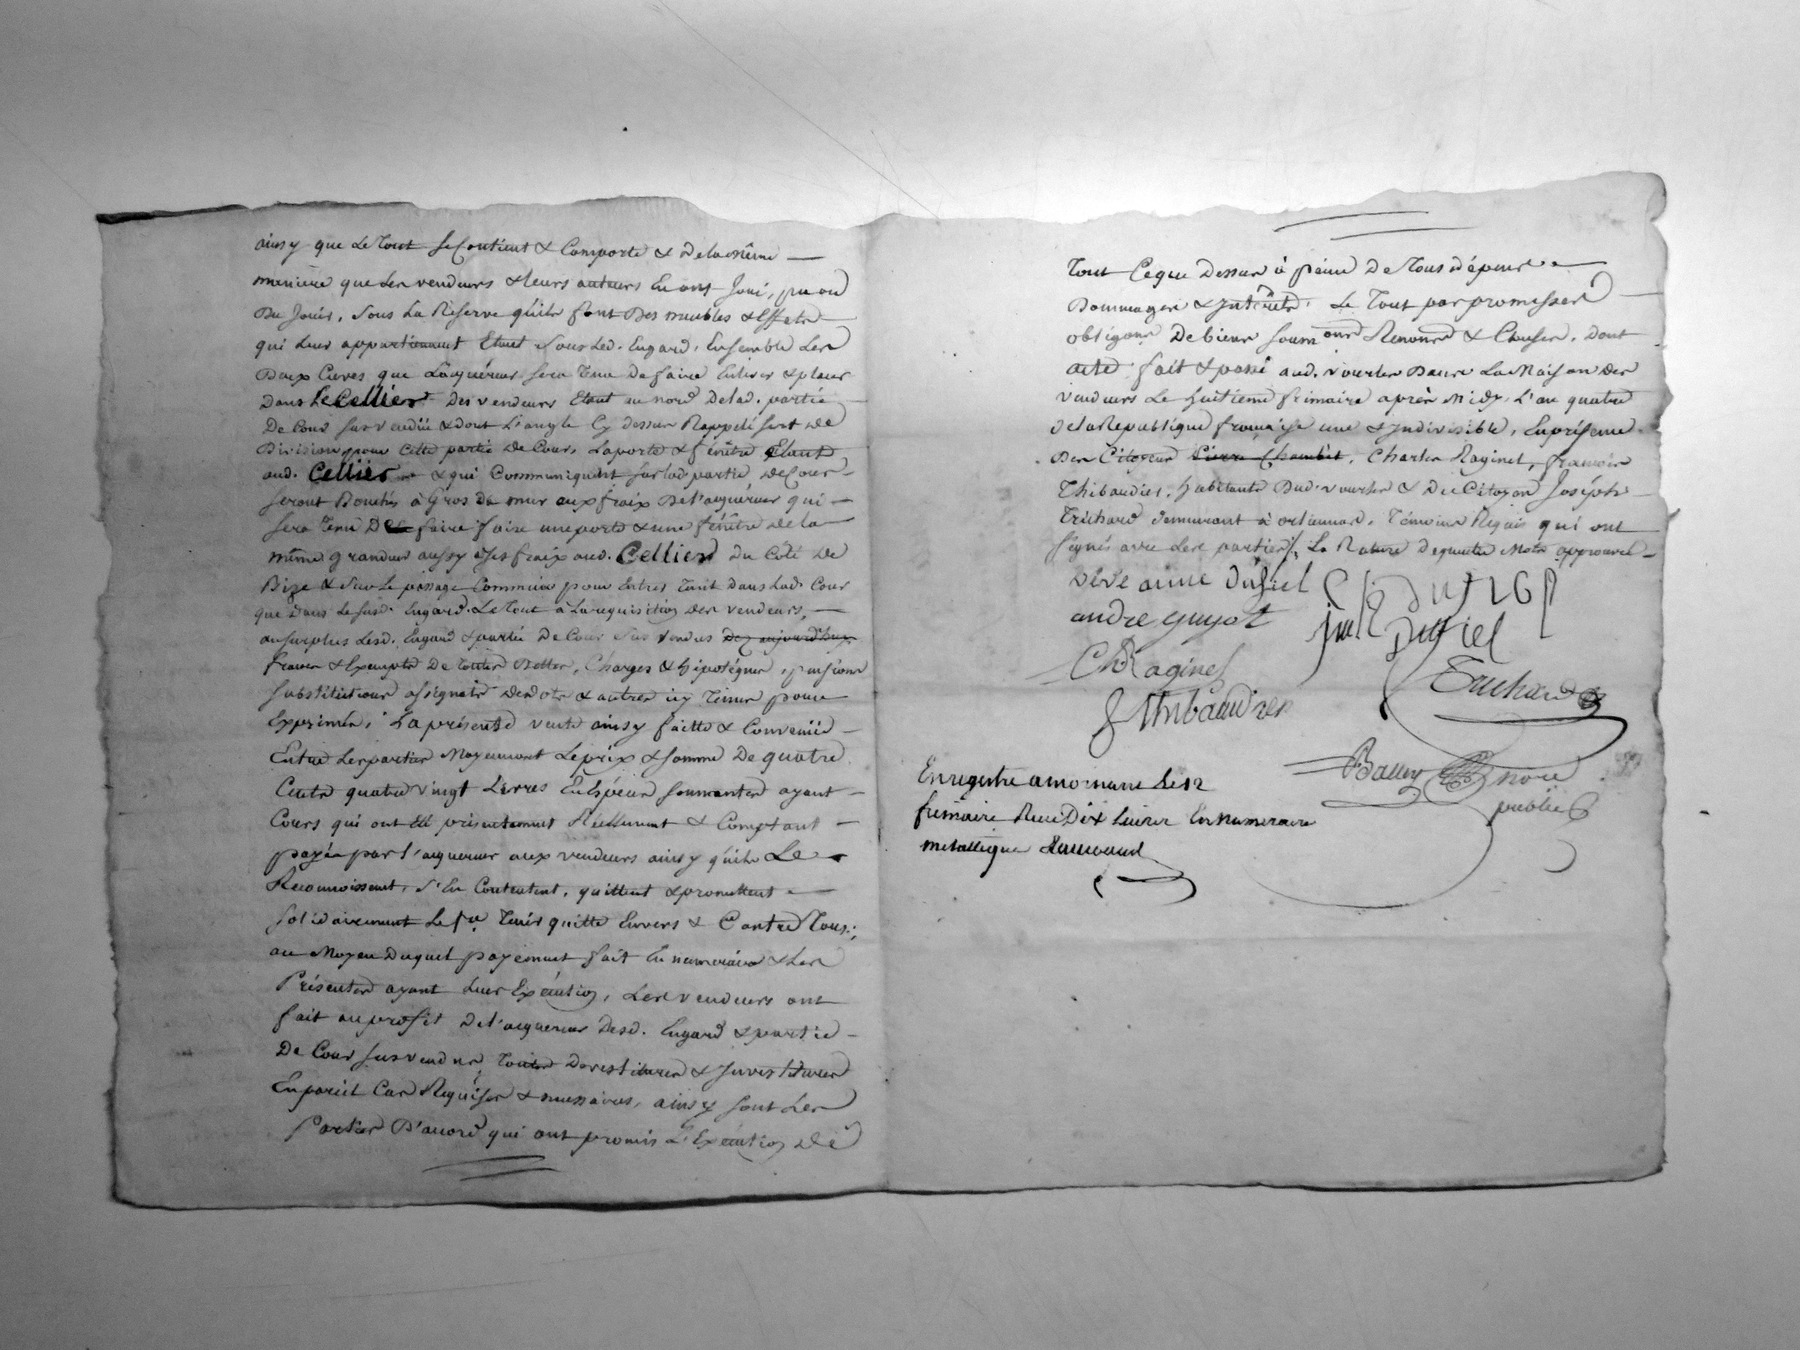 ainsy que Le Tout se Contient & Comporte & De la même
maniere que les vendeurs & leurs auteurs En ont Joui, pu ou
Du Jouir, Sous La Réserve qu'ils font Des meubles & Effets
qui Leur appartiennent Etant Sous Led. Engard, Ensemble Les
Deux Cuves que L'acquéreur sera Tenu De faire Enlever & placer
Dans Le Cellier Des vendeurs Etant au nord De lad. partie
De Cour Sus vendüe & dont L'angle Cy dessus Rappelé Sert De
Division pour Cette partie De Cour, La porte & fénêtre Etant
aud. Cellier & qui Communiquent Sur lad. partie De Cour
Seront Bouchés à Gros De mur aux fraix De l'acquéreur qui
Sera Tenu De faire faire une porte & une fénêtre De la
même grandeur aussy à Ses fraix aud. Cellier Du Côté De
Bize & Sur Le passage Commun pour Entrer Tant Dans Lad. Cour
que Dans Le Susd. Engard. Le Tout à La requisition Des vendeurs,
au surplus Lesd. Engard & partie De Cour Sus vendus Dez aujourd'huy
francs & Exempts De Toutes Dettes, Charges & hipotéques, pensions
Substitutions assignats Dedots & autres icy Tenus pour
Exprimés, La présente vente ainsy faitte & Convenüe
Entre Les parties Moyennant Le prix & Somme De quatre
Cents quatre vingt Livres En Espéces Sonnantes ayant
Cours qui ont Eté présentement Réellement & Comptant
payés par L'acquereur aux vendeurs ainsy qu'ils Le
Reconnoissent, S'En Contentent, quittent & promettent
Solidairement Le faire Tenir quitte Envers & Contre Tous;
au Moyen Duquel payement fait En numeraire & Les
Présentes ayant Leur Exécution, Les vendeurs ont
fait au profit De l'acquereur Desd. Engard & partie
De Cour Susvendus, Toutes Devestitures & Investitures
En pareil Cas Requises & necessaires, ainsy Sont Les
Parties D'accord qui ont promis L'Exécution De
Tout Ceque Dessus à peine De Tous dépens
Dommages & Intérêts. Le Tout par promesses
obligons De biens Soumons Renonons & Clauses. Dont
acte fait & passé aud. Vourles Dans La Maison des
vendeurs Le huitième frimaire après Midy, L'an quatre
De la République française une & Indivisible, En présence
Des Citoyens Pierre Chambet, Charles Raginel, françois
Thibaudier, habitants Dud. Vourles & Du Citoyen Joséph
Trichard Demeurant à orlienas, Témoins Requis qui ont
Signés avec Les parties, La Rature De quatre Mots approuvée
veve aine Dufiel
andre guyot
Dufiel
Ch Raginel
Trichard
f Thibaudier
notre
public
Enregistré a mornant Le 12
frimaire Reçu Dix Livres En Numeraire
metallique